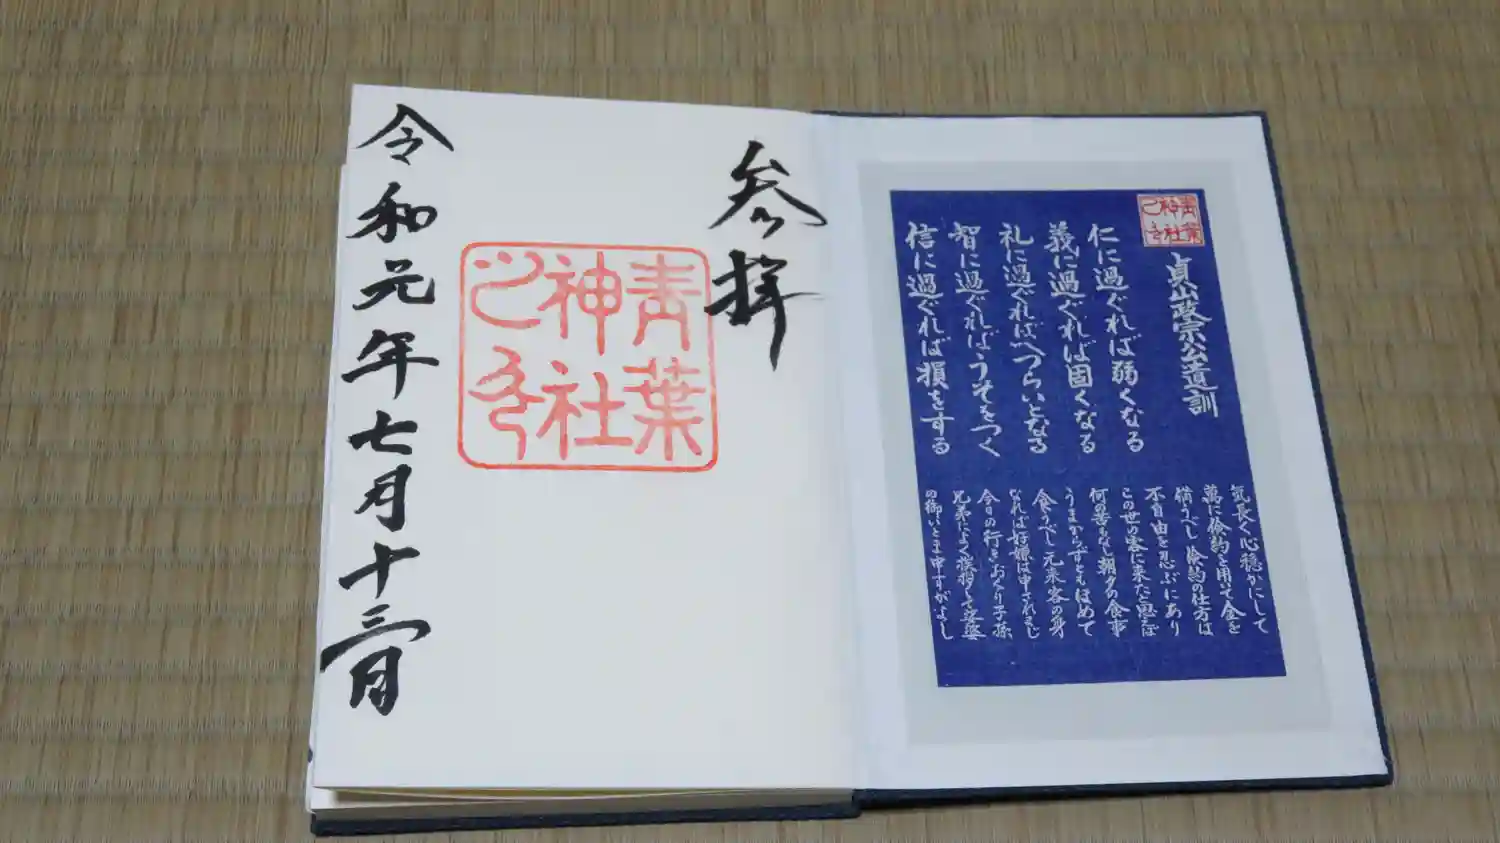 青葉
神社
之印
貞山政宗公遺訓
仁に過ぐれば弱くなる
義に過ぐれば固くなる
礼に過ぐればへつらいとなる
智に過ぐればうそをつく
信に過ぐれば損をする
気長く心穏かにして
萬に倹約を用いて金を
備うべし 倹約の仕方は
不自由を忍ぶにあり
この世の客に来たと思えば
何の苦もなし朝夕の食事
うまからずともほめて
食うべし 元来客の身
なれば好嫌は申されまじ
今日の行をおくり子孫
兄弟によく挨拶して娑婆
の御いとま申すがよし
参拝
青葉
神社
之印
令和元年七月十三日